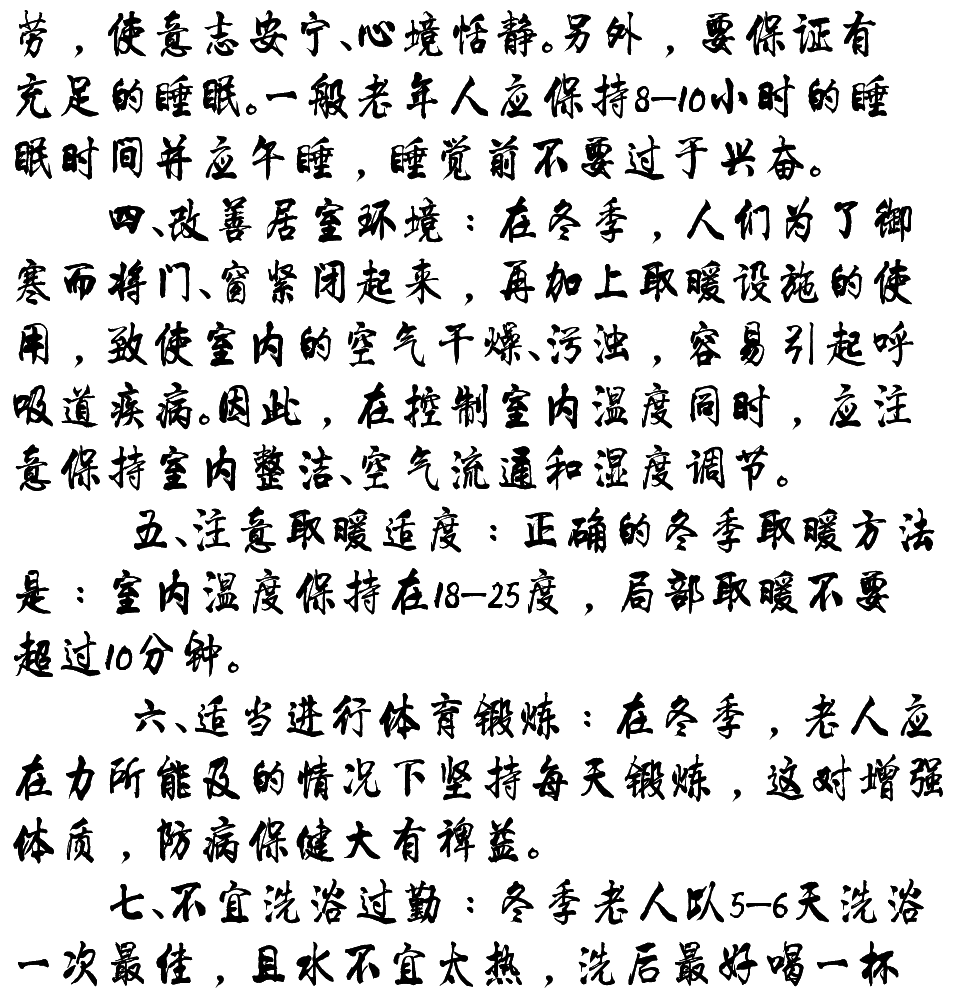 劳，使意志安宁、心境恬静。另外，要保证有
充足的睡眠。一般老年人应保持8—10小时的睡
眠时间并应午睡，睡觉前不要过于兴奋。
四、改善居室环境：在冬季，人们为了御
寒而将门、窗紧闭起来，再加上取暖设施的使
用，致使室内的空气干燥、污浊，容易引起呼
吸道疾病。因此，在控制室内温度同时，应注
意保持室内整洁、空气流通和湿度调节。
五、注意取暖适度：正确的冬季取暖方法
是：室内温度保持在18—25度，局部取暖不要
超过10分钟。
六、适当进行体育锻炼：在冬季，老人应
在力所能及的情况下坚持每天锻炼，这对增强
体质，防病保健大有裨益。
七、不宜洗浴过勤：冬季老人以5—6天洗浴
一次最佳，且水不宜太热，洗后最好喝一杯